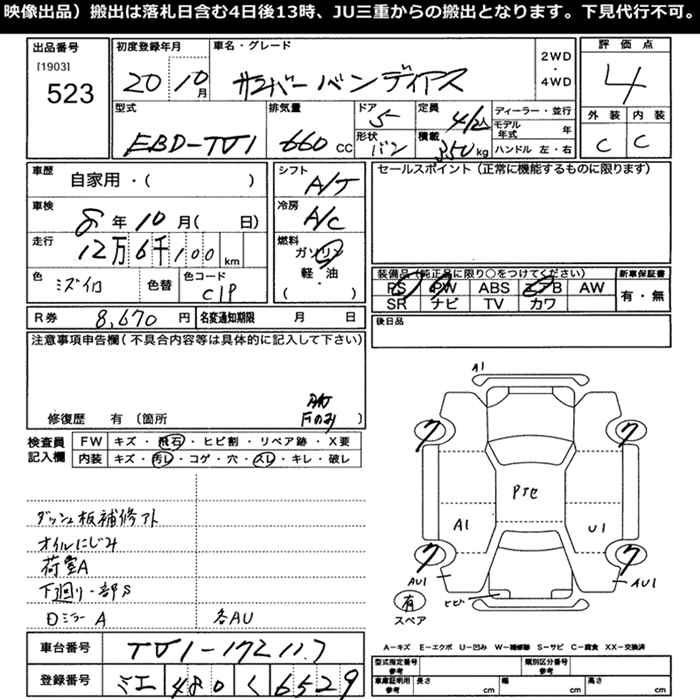 映像出品）搬出は落札日含む4日後13時、JU三重からの搬出となります。下見代行不可。
出品番号
[1903]
523
初度登録年月
20 10月
車名・グレード
サンバーバンディアス
2WD
・
4WD
評価点
4
外装 内装
C C
型式
EBD-TV1
排気量
660 CC
ドア
5
形状
バン
定員
4/2人
積載
350 kg
ディーラー・並行
モデル年式 年
ハンドル 左・右
車歴
自家用・( )
車検
8年10月( 日)
走行
12万6千100 km
色
ミズイロ
色替
色コード
C1P
シフト
A/T
冷房
A/C
燃料
ガソリン
軽・油
( )
セールスポイント(正常に機能するものに限ります)
装備品(純正品に限り○をつけてください)
PS PW ABS エアB AW
SR ナビ TV カワ
新車保証書
有・無
R券 8,670円
名変通知期限 月 日
後日品
注意事項申告欄(不具合内容等は具体的に記入して下さい)
Fのみ
修復歴 有 〔箇所 〕
検査員記入欄
FW キズ・飛石・ヒビ割・リペア跡・X要
内装 キズ・汚レ・コゲ・穴・スレ・キレ・破レ
ダッシュ板補修アト
オイルにじみ
荷室A
下廻り一部S
Dミラー A
各AU
A1
7 7
PTE
A1 U1
7 7
AU1 AU1
ヒビ
有
スペア
車台番号
TV1-172117
登録番号
ミエ 480 く 6529
A-キズ E-エクボ U-凹み W-補修跡 S-サビ C-腐食 XX-交換済
型式指定番号
参考
類別区分番号
参考
車庫証明用
参考
長さ cm
幅 cm
高さ cm